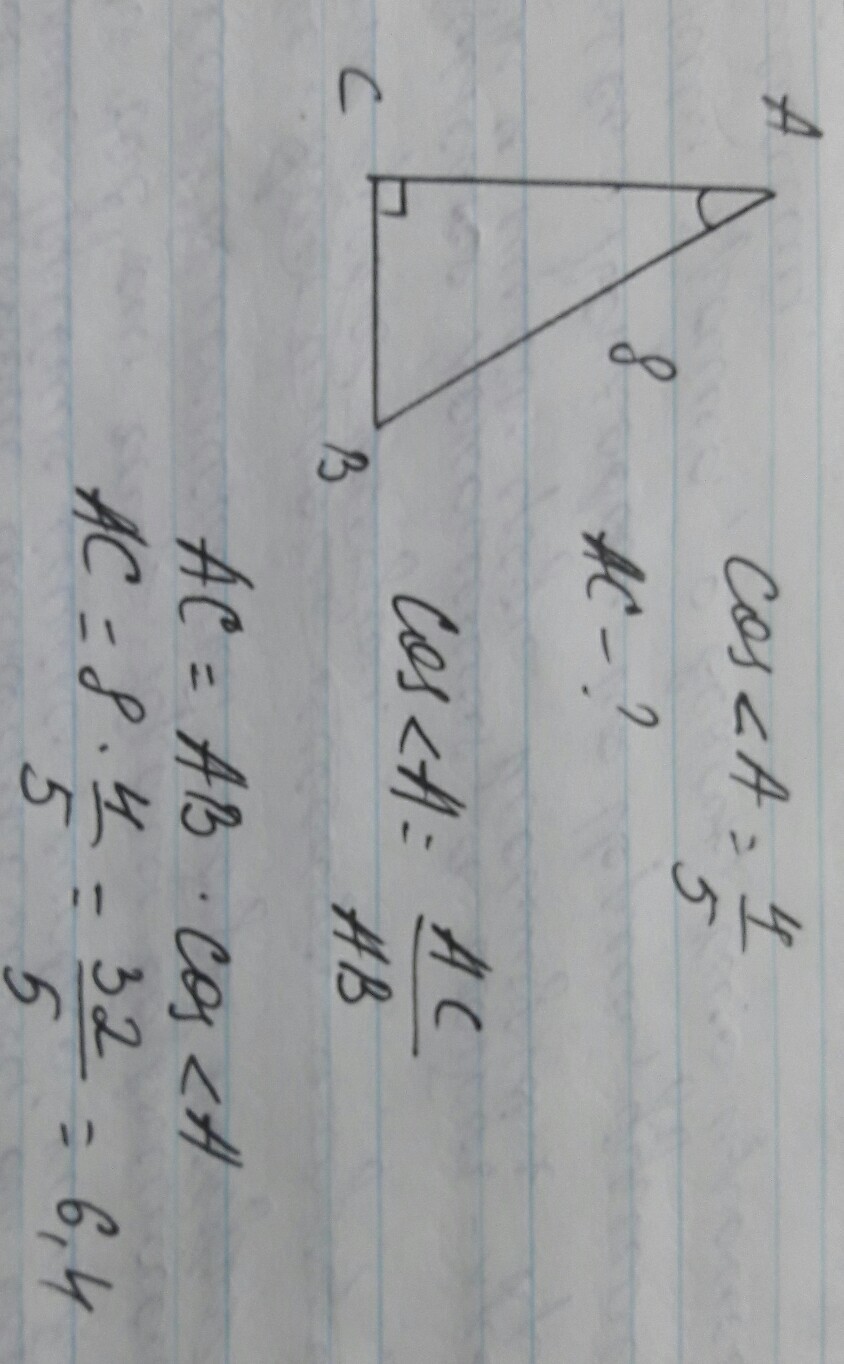 A
C
B
8
Cos<A = 4/5
AC - ?
Cos<A = AC/AB
AC = AB · Cos<A
AC = 8 · 4/5 = 32/5 = 6,4